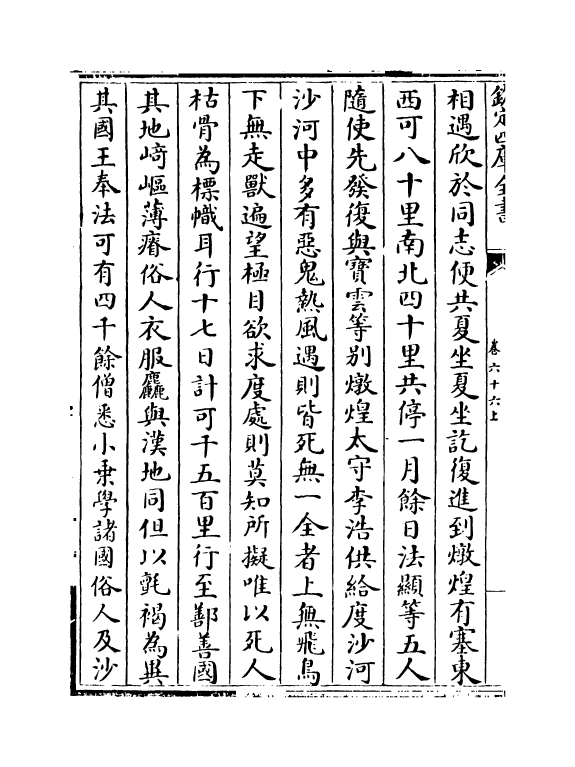 欽定四庫全書
卷六十六上
相遇欣於同志便共夏坐夏坐訖復進到燉煌有塞東
西可八十里南北四十里共停一月餘日法顯等五人
隨使先發復與寶雲等別燉煌太守李浩供給度沙河
沙河中多有惡鬼熱風遇則皆死無一全者上無飛鳥
下無走獸遍望極目欲求度處則莫知所擬唯以死人
枯骨為標幟耳行十七日計可千五百里行至鄯善國
其地﨑嶇薄瘠俗人衣服麤與漢地同但以氈褐為異
其國王奉法可有四千餘僧悉小乗學諸國俗人及沙